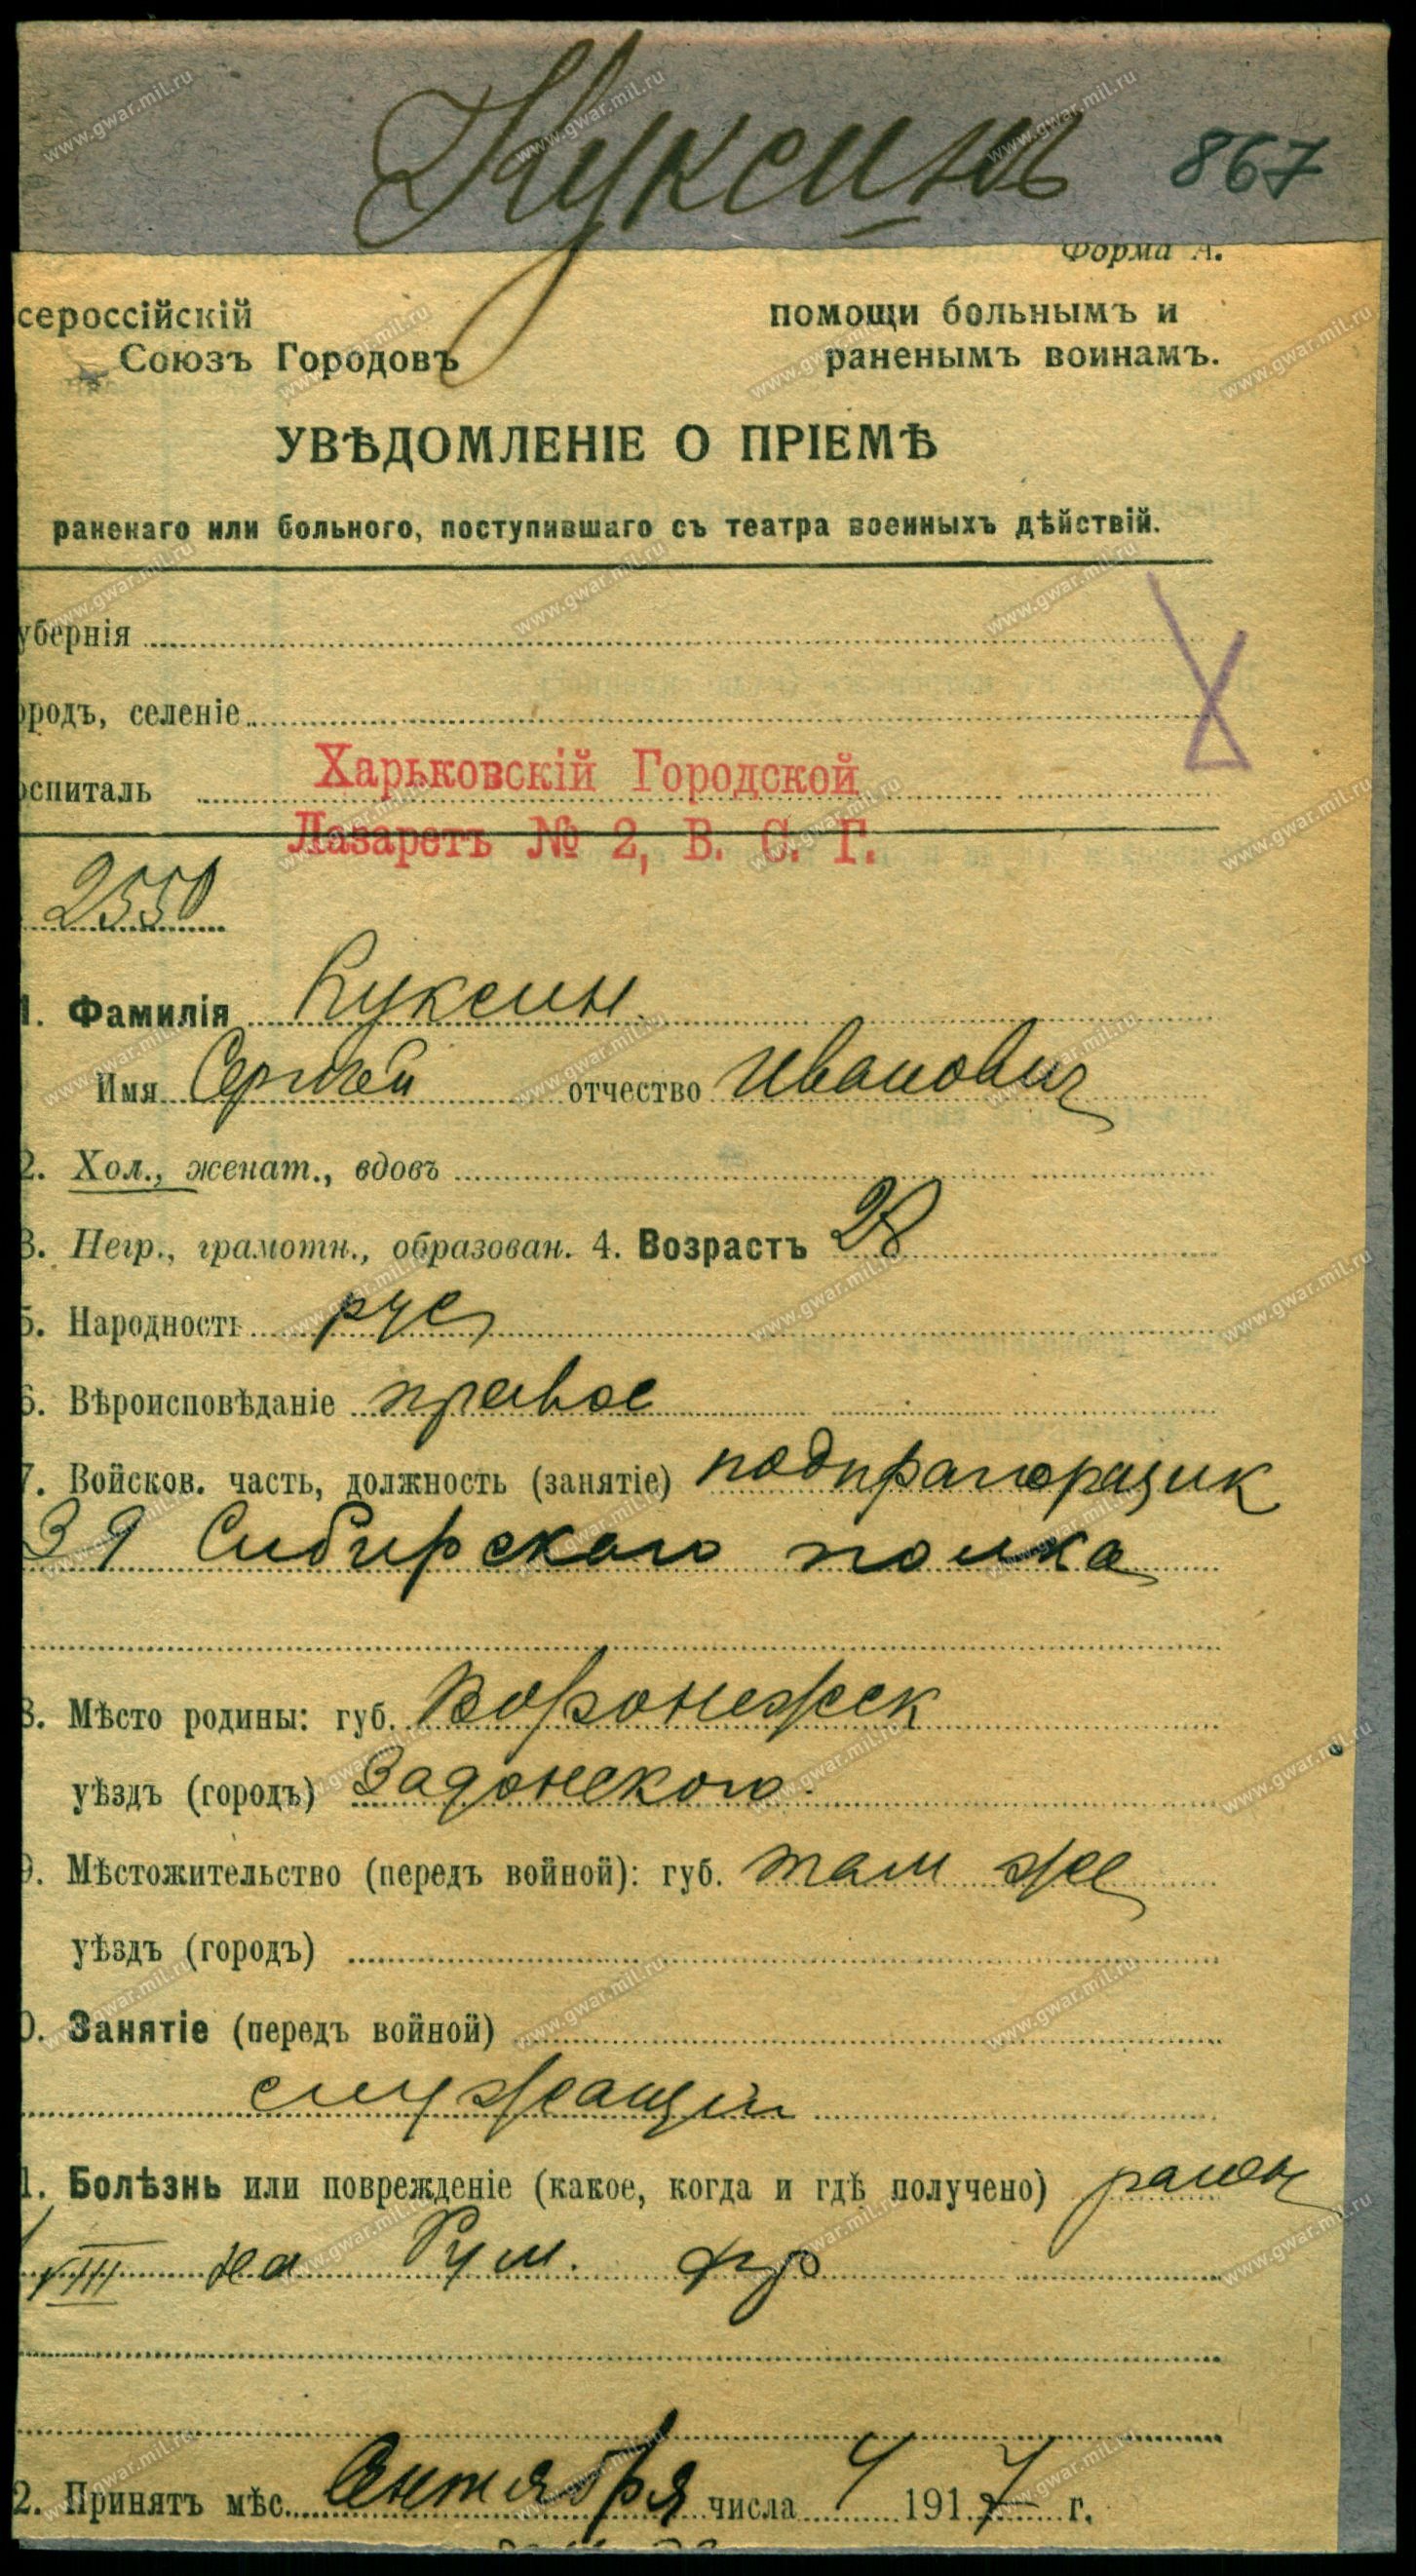 Куксинъ 867
Форма А.
сероссійскій помощи больнымъ и
Союзъ Городовъ раненымъ воинамъ.
УВѢДОМЛЕНІЕ О ПРІЕМѢ
раненаго или больного, поступившаго съ театра военныхъ дѣйствій.
убернія
ородъ, селеніе
оспиталь Харьковскій Городской
Лазаретъ № 2, В. С. Г.
2550
1. Фамилія Куксин
Имя Сергей отчество Иванович
2. Хол., женат., вдовъ
3. Негр., грамотн., образован. 4. Возрастъ 28
5. Народность рус
6. Вѣроисповѣданіе правос
7. Войсков. часть, должность (занятіе) подпрапорщик
39 Сибирскаго полка
8. Мѣсто родины: губ. Воронежск
уѣздъ (городъ) Задонского
9. Мѣстожительство (передъ войной): губ. там же
уѣздъ (городъ)
0. Занятіе (передъ войной)
служащий
1. Болѣзнь или поврежденіе (какое, когда и гдѣ получено) ранен
VIII на Рум. фр
2. Принятъ мѣс. Сентября числа 4 1917 г.
www.gwar.mil.ru